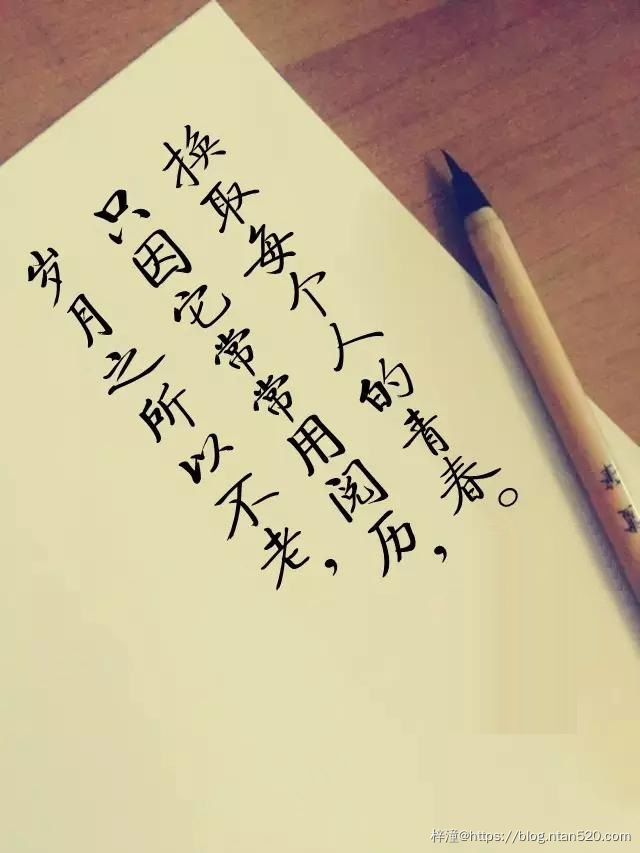 岁月之所以不老，
只因它常常用阅历，
换取每个人的青春。
梓潼@https://blog.ntan520.com